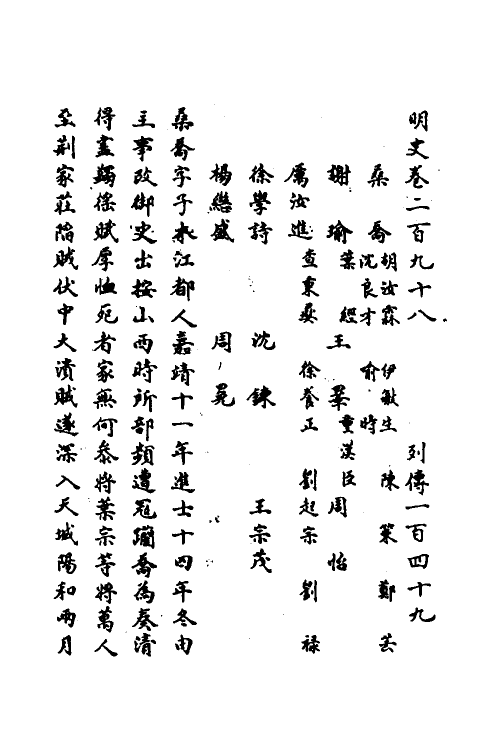 明史卷二百九十八 列傳一百四十九
桑喬 胡汝霖 沈良才 伊敏生 俞時 陳策 鄭芸
謝瑜 葉經 王曄 童漢臣 周怡
厲汝進 查秉彝 徐養正 劉起宗 劉祿
徐學詩 沈鍊 王宗茂
楊繼盛 周冕
桑喬字子木江都人嘉靖十一年進士十四年冬由
主事改御史出按山西時所部頻遭冦躪喬為奏請
得盡蠲徭賦厚恤死者家無何叅將葉宗等將萬人
至荆家莊陷賊伏中大潰賊遂深入天城陽和兩月